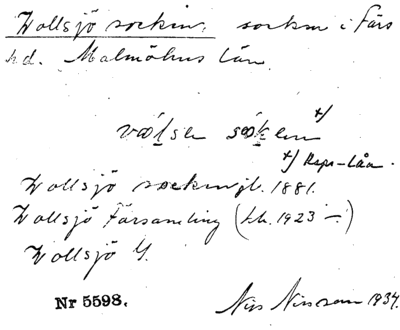 Vollsjö socken, socken i Färs
hd. Malmöhus län.
+)
+) Repr-lån.
Vollsjö sockenjl. 1881.
Vollsjö Församling (tb. 1923 –)
Vollsjö G.
Nr 5598. Nils Nilsson 1934.